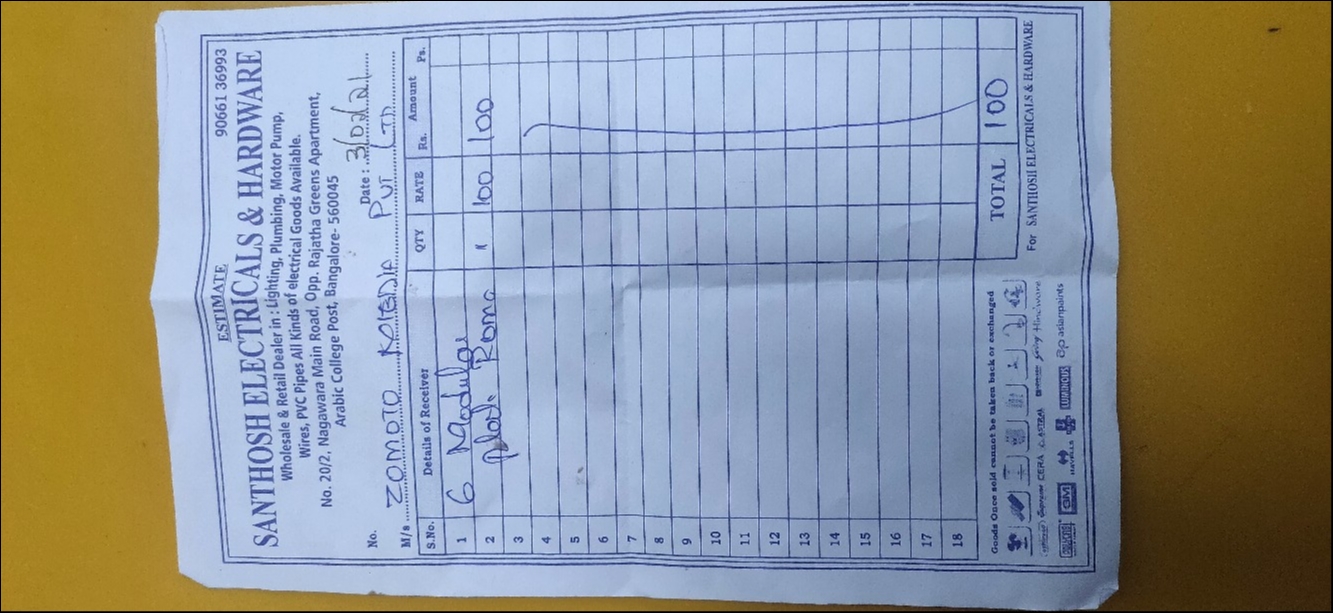 ESTIMATE
90661 36993
SANTHOSH ELECTRICALS & HARDWARE
Wholesale & Retail Dealer in : Lighting, Plumbing, Motor Pump,
Wires, PVC Pipes All Kinds of electrical Goods Available.
No. 20/2, Nagawara Main Road, Opp. Rajatha Greens Apartment,
Arabic College Post, Bangalore- 560045
No. Date : 3/02/21
M/s ZOMOTO PVT LTD
S.No. Details of Receiver QTY RATE Rs. Amount Ps.
1 6 Module
2 Roma " 100 100
3
4
5
6
7
8
9
10
11
12
13
14
15
16
17
18
TOTAL 100
Goods Once sold cannot be taken back or exchanged
For SANTHOSH ELECTRICALS & HARDWARE
Supreme CERA ASTRAL Hindware
GM HAVELLS LUMINOUS ap asianpaints